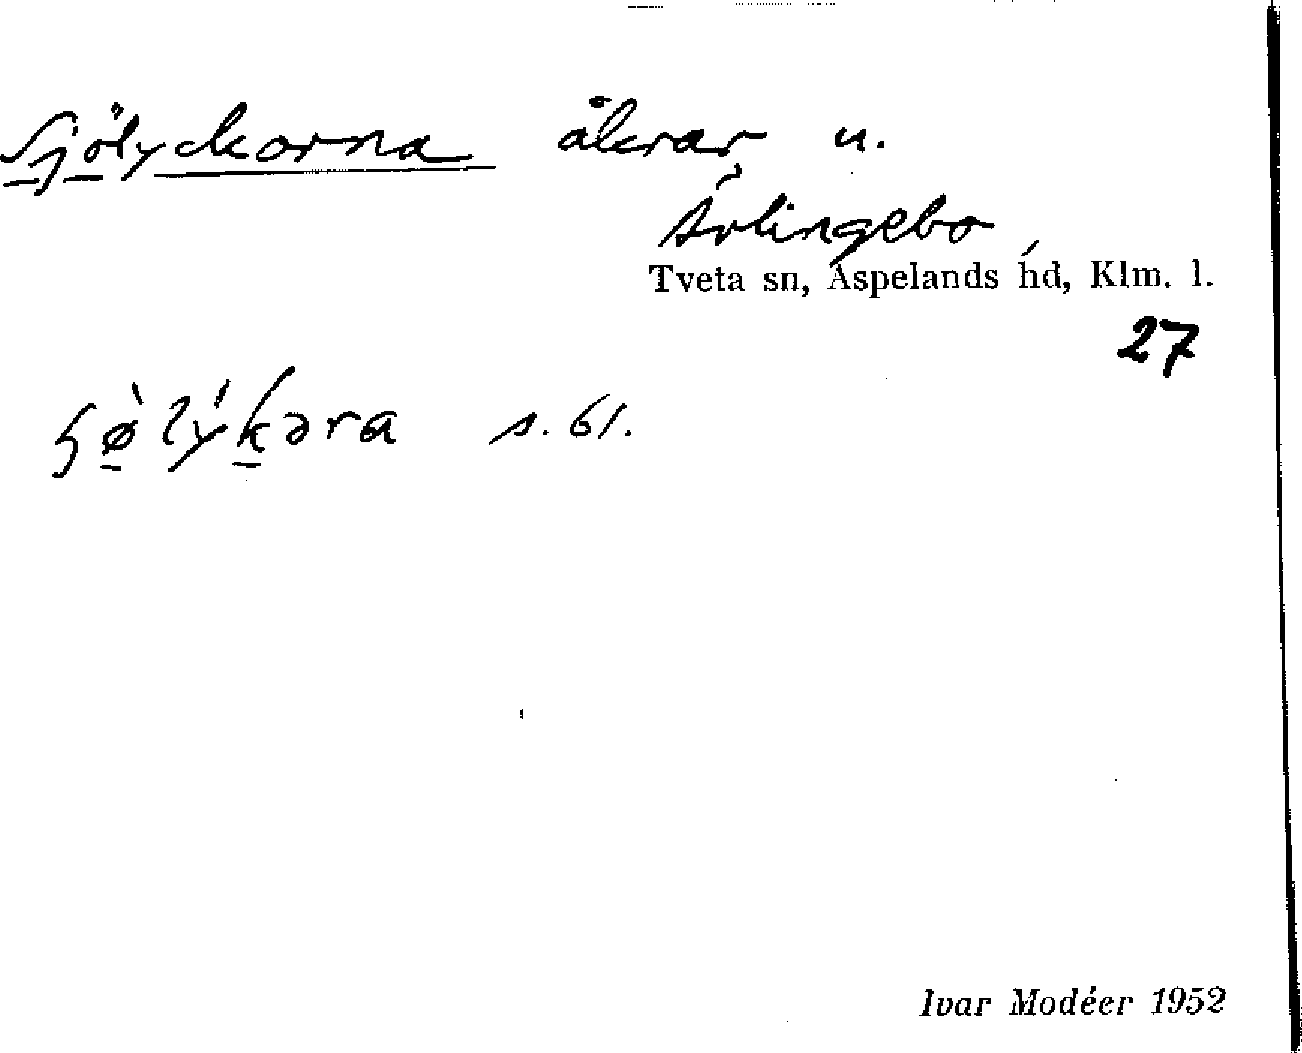 Sjölyckorna åkrar u.
Ärlingebo
Tveta sn, Aspelands hd, Klm. l.
27
ɧø̀lýkəra s. 61.
Ivar Modéer 1952